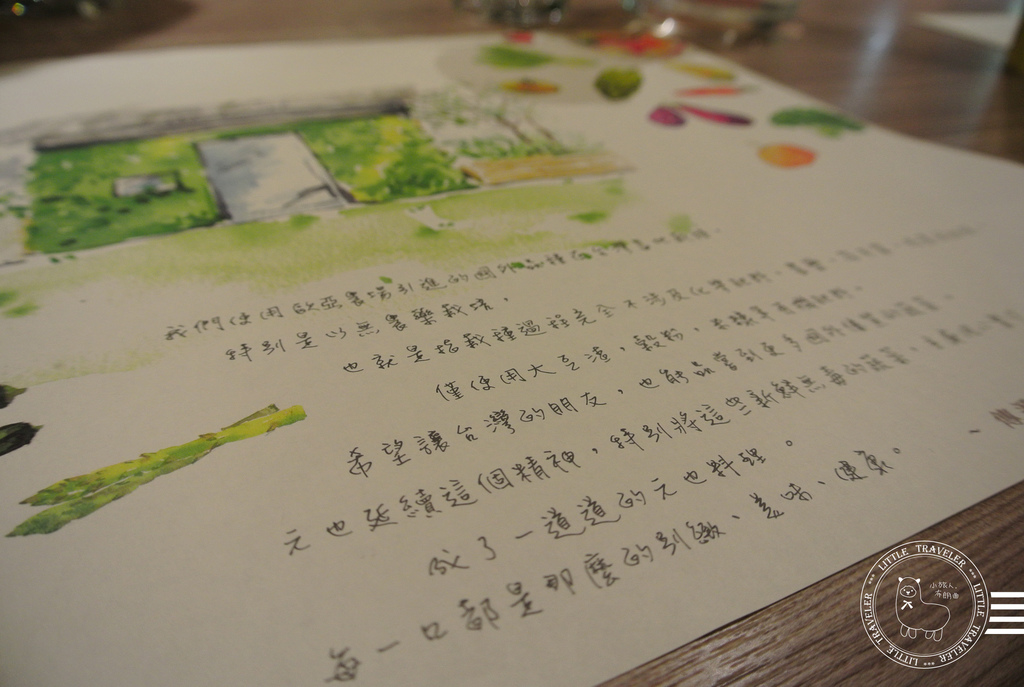 我們使用歐亞農場引進的國外品種
特別是以無農藥栽培，
也就是指栽種過程完全不涉及化學肥料、
僅使用大豆渣，穀粉，
希望讓台灣的朋友，也能品嘗到更多國際
元也延續這個精神，特別將這些新鮮無毒的蔬菜，
成了一道道的元也料理。
每一口都是那麼的別緻、美味、健康。
LITTLE TRAVELER ••• LITTLE TRAVELER ••• LITTLE TRAVELER •••
小旅人．
布朗曲